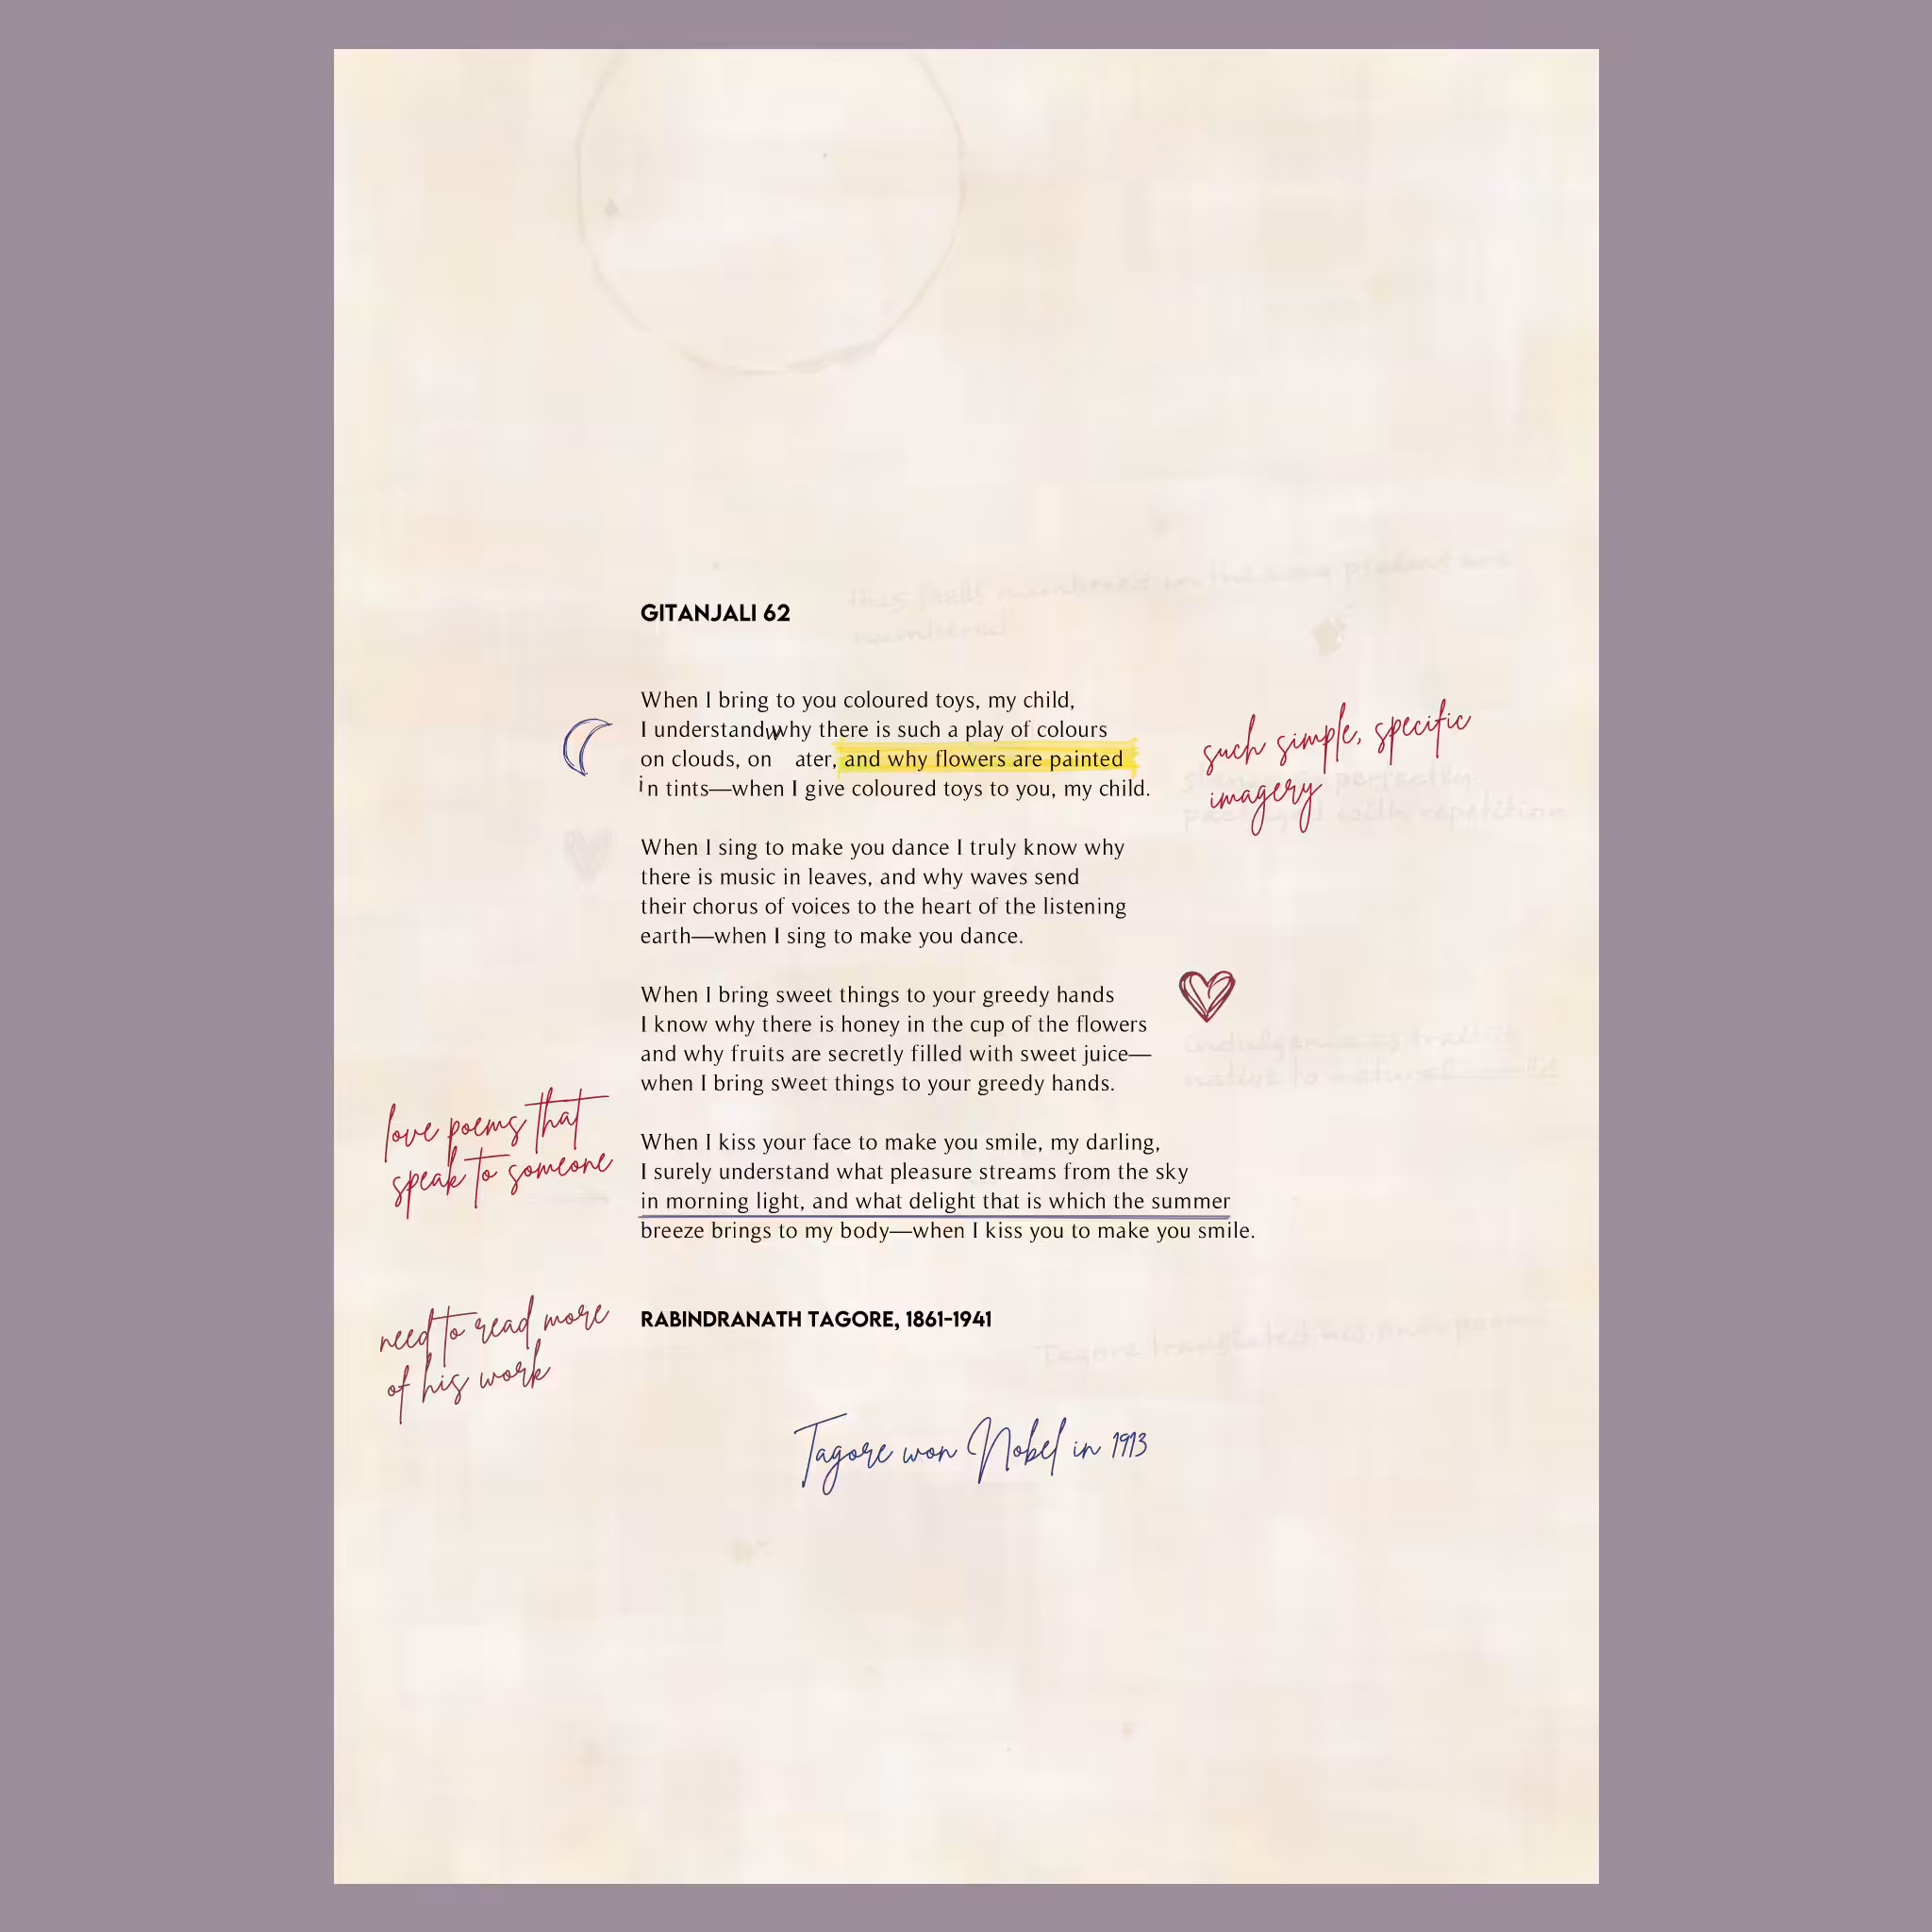 GITANJALI 62
When I bring to you coloured toys, my child,
I understand why there is such a play of colours
on clouds, on ater, and why flowers are painted
in tints—when I give coloured toys to you, my child.
such simple, specific
imagery
When I sing to make you dance I truly know why
there is music in leaves, and why waves send
their chorus of voices to the heart of the listening
earth—when I sing to make you dance.
When I bring sweet things to your greedy hands
I know why there is honey in the cup of the flowers
and why fruits are secretly filled with sweet juice—
when I bring sweet things to your greedy hands.
love poems that
speak to someone
When I kiss your face to make you smile, my darling,
I surely understand what pleasure streams from the sky
in morning light, and what delight that is which the summer
breeze brings to my body—when I kiss you to make you smile.
need to read more
of his work
RABINDRANATH TAGORE, 1861-1941
Tagore translated his own poems
Tagore won Nobel in 1913